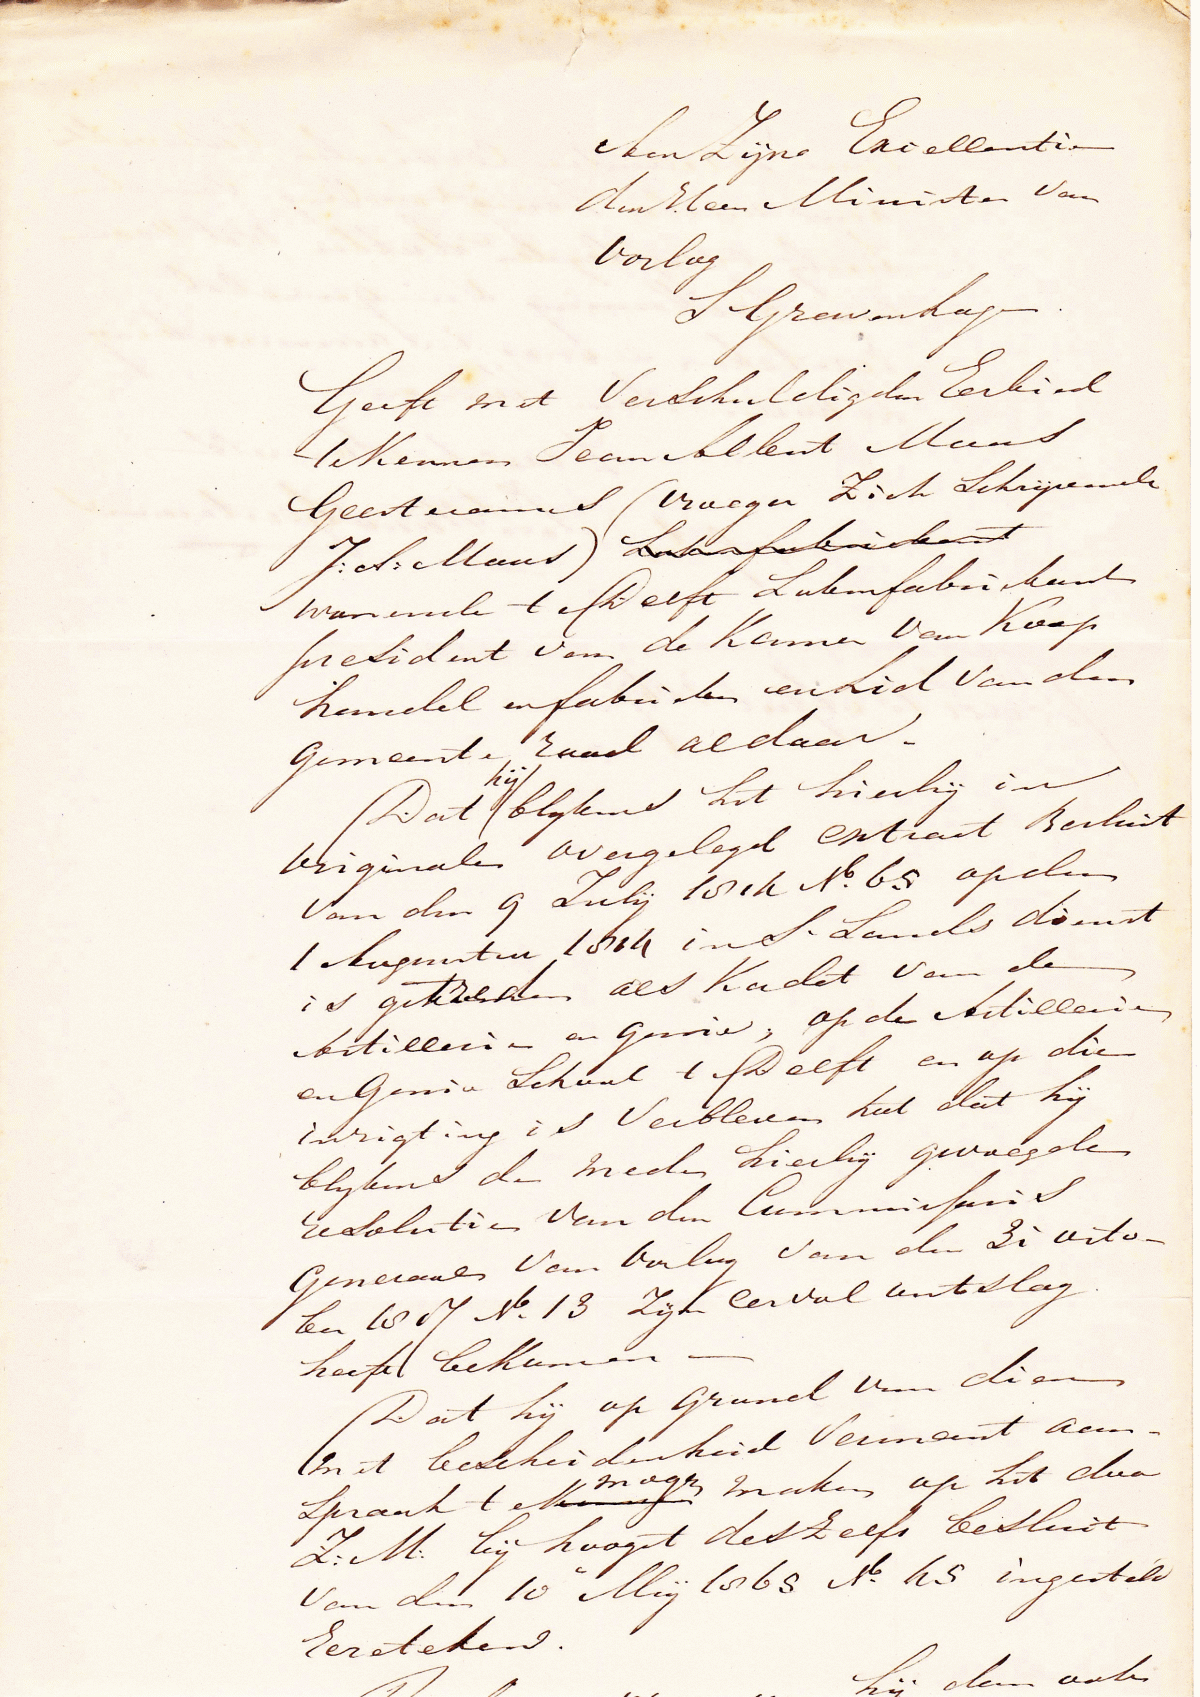 Aan Zijne Excellentie
den Heer Minister van
Oorlog
S Gravenhage.
Geeft met verschuldigden Eerbied
te Kennen Jean Albert Maas
Geesteranus (vroeger Zich Schrijvende
J: A: Maas) Lakenfabrickant
wonende te Delft Lakenfabrikant
president van de Kamer van Koop
handel en fabrieken en Lid van den
gemeente raad aldaar.
hij
Dat blykens het hierbij in
originale overgelegd extract Besluit
van den 9 Julij 1814 No. 65 op den
1 Augustus 1814 in S Lands dienst
is getreden als Kadet van de
Artillerie en genie, op de Artillerie
en Genie School te Delft en op die
inrigting is verbleven tot dat hij
blykens de mede hierbij gevoegde
resolutie van den Commissaris
Generaal van Oorlog van den 31 octo-
ber 1817 No. 13 Zijn eervol ontslag
heeft bekomen —
Dat hij op grond van dien
met bescheidenheid vermeent aan-
mogen
spraak te Kunnen maken op het door
Z: M: bij hoogst deszelfs besluit
van den 10 Meij 1865 No. 45 ingesteld
Eereteken.
hij dan ook